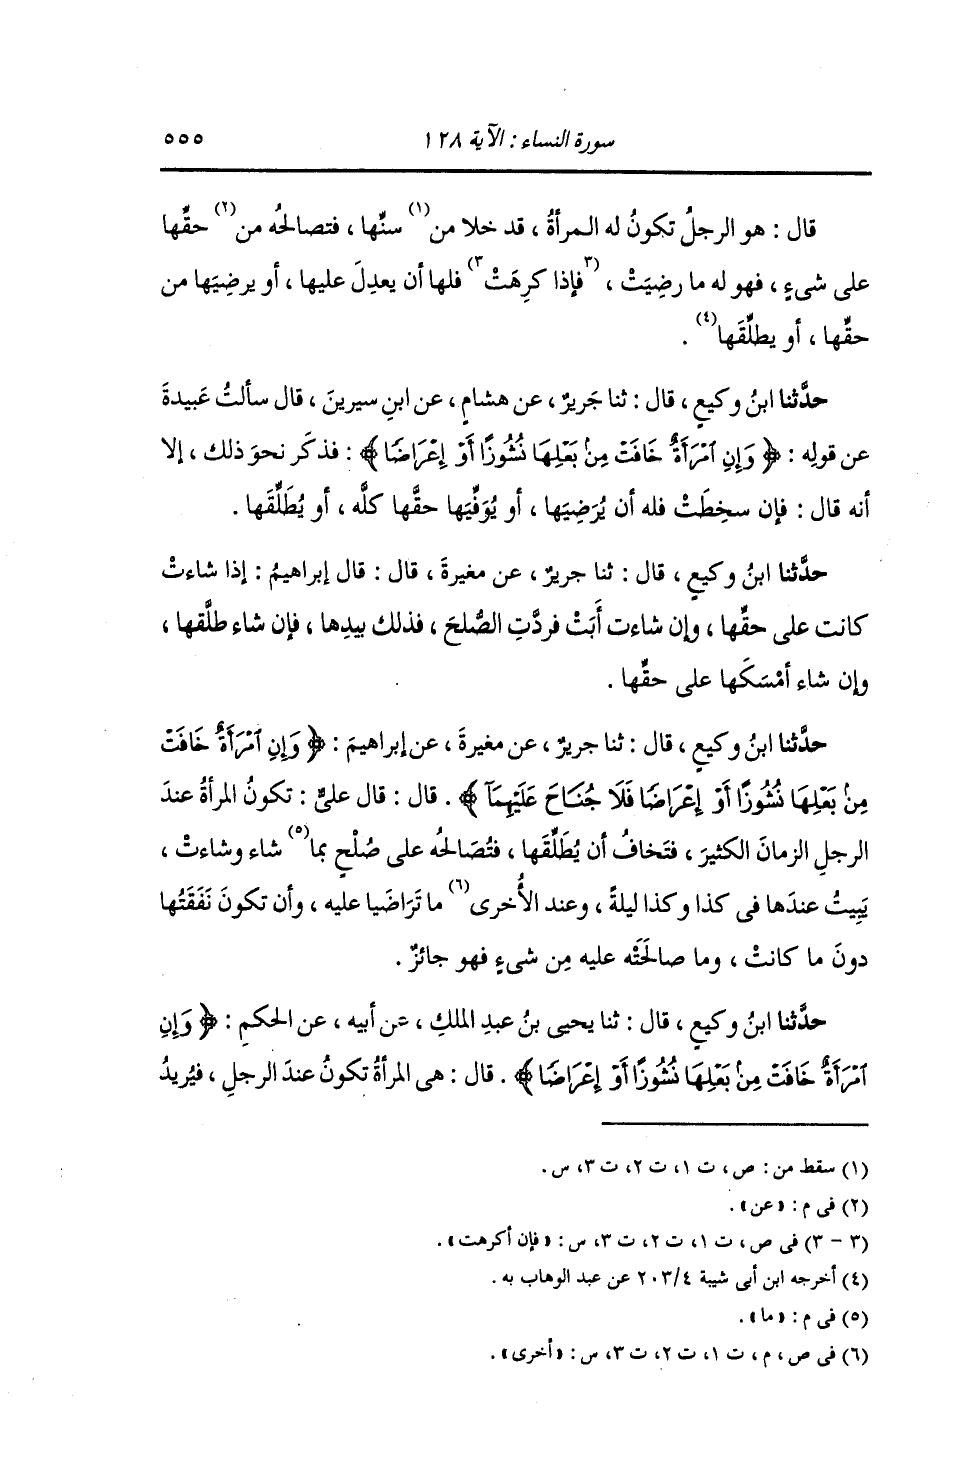 سورة النساء : الآية ١٢٨ ٥٥٥
قال : هو الرجلُ تكونُ له المرأةُ ، قد خلا من(١) سنِّها ، فتصالحُه من(٢) حقِّها
على شىءٍ ، فهو له ما رضِيَتْ ، (٣فإذا كرِهَتْ٣) فلها أن يعدِلَ عليها ، أو يرضِيَها من
حقِّها ، أو يطلِّقَها(٤) .
حدَّثنا ابنُ وكيعٍ ، قال : ثنا جَريرٌ ، عن هشامٍ ، عن ابنِ سيرينَ ، قال سألتُ عَبيدةَ
عن قولِه : ﴿ وَإِنِ ٱمْرَأَةٌ خَافَتْ مِنۢ بَعْلِهَا نُشُوزًا أَوْ إِعْرَاضًا ﴾ : فذكَر نحوَ ذلك ، إلا
أنه قال : فإن سخِطَتْ فله أن يُرَضِيَها ، أو يُوَفِّيَها حقَّها كلَّه ، أو يُطَلِّقَها .
حدَّثنا ابنُ وكيعٍ ، قال : ثنا جريرٌ ، عن مغيرةَ ، قال : قال إبراهيمُ : إذا شاءتْ
كانت على حقِّها ، وإن شاءت أَبَتْ فردَّتِ الصُّلحَ ، فذلك بيدِها ، فإن شاء طلَّقها ،
وإن شاء أمْسَكَها على حقِّها .
حدَّثنا ابنُ وكيعٍ ، قال : ثنا جريرٌ ، عن مغيرةَ ، عن إبراهيمَ : ﴿ وَإِنِ ٱمْرَأَةٌ خَافَتْ
مِنۢ بَعْلِهَا نُشُوزًا أَوْ إِعْرَاضًا فَلَا جُنَاحَ عَلَيْهِمَآ ﴾ . قال : قال علىٌّ : تكونُ المرأةُ عندَ
الرجلِ الزمانَ الكثيرَ ، فتَخافُ أن يُطَلِّقَها ، فتُصَالحُه على صُلْحٍ بما(٥) شاء وشاءتْ ،
يَبِيتُ عندَها فى كذا وكذا ليلةً ، وعند الأُخرى(٦) ما تَرَاضَيا عليه ، وأن تكونَ نَفَقَتُها
دونَ ما كانتْ ، وما صالحَتْه عليه مِن شىءٍ فهو جائزٌ .
حدَّثنا ابنُ وكيعٍ ، قال : ثنا يحيى بنُ عبدِ الملكِ ، عن أبيه ، عن الحكمِ : ﴿ وَإِنِ
ٱمْرَأَةٌ خَافَتْ مِنۢ بَعْلِهَا نُشُوزًا أَوْ إِعْرَاضًا ﴾ . قال : هى المرأةُ تكونُ عندَ الرجلِ ، فيُريدُ
(١) سقط من : ص ، ت ١، ت ٢، ت ٣، س .
(٢) فى م : « عن » .
(٣ - ٣) فى ص ، ت ١، ت ٢، ت ٣، س : « فإن أكرهت » .
(٤) أخرجه ابن أبى شيبة ٢٠٣/٤ عن عبد الوهاب به .
(٥) فى م : « ما » .
(٦) فى ص ، م ، ت ١، ت ٢، ت ٣، س : « أخرى » .